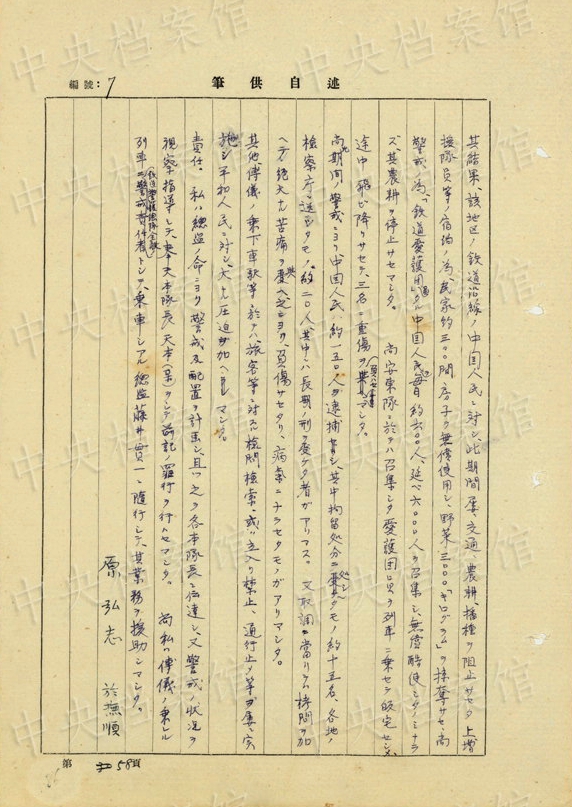 中央档案馆
編號：7
筆供自述
其結果、該地区ノ鉄道沿線ノ中国人民ニ対シ、此期間屡〻交通、農耕、播種ヲ阻止サセタ上増
援隊員等ノ宿泊ノ為、民家約三〇〇間房子ヲ無償使用シ、野菜三〇〇〇「キログラム」ヲ掠奪サセ、尚
警戒ノ為、「鉄道愛護團」タル中国人民毎日約六〇〇人、延ベ六〇〇〇人ヲ召集シ、無償酷使シタノミナラ
ズ、其農耕ヲ停止サセマシタ。 尚安東隊ニ於テハ召集シタ愛護団員ヲ列車ニ乗セテ帰宅セシメ、
途中飛ビ降リサセテ、三名ニ重傷ヲ負ハセマシタ。
尚期間ノ警戒ニヨリ中国人民約一五〇人ヲ逮捕シ、其中拘留処分ニ処シタモノ約十五名、各地ノ
検察庁ニ送致シタモノ約二〇人、其中ニハ長期ノ刑ヲ受ケタ者ガアリマス。 又取調ニ当リテハ拷問ヲ加
ヘテ絶大ナ苦痛ヲ与ヘ之ニヨリ、負傷サセタリ、病気ニナラセタモノガアリマシタ。
其他溥儀ノ乗下車駅等ニ於テハ、旅客等ニ対スル検問検索、或ハ立入リ禁止、通行止メ等ヲ屡〻実
施シ平和人民ニ対シ、大ナル圧迫ヲ加ヘマシタ。
責任。 私ハ総監ノ命ニヨリ警戒及配置ヲ計画シ且ツ之ヲ各本隊長ニ伝達シ、又警戒ノ状況ヲ
視察指導シテ、奉天本隊長天本（某）ヲシテ前記ノ罪行ヲ行ハセマシタ。 尚私ハ溥儀ノ乗レル
列車ニ警戒責任者トシテ、乗車シアル総監藤井貫一ニ随行シテ、其業務ヲ援助シマシタ。
原弘志 於撫順
第 58頁